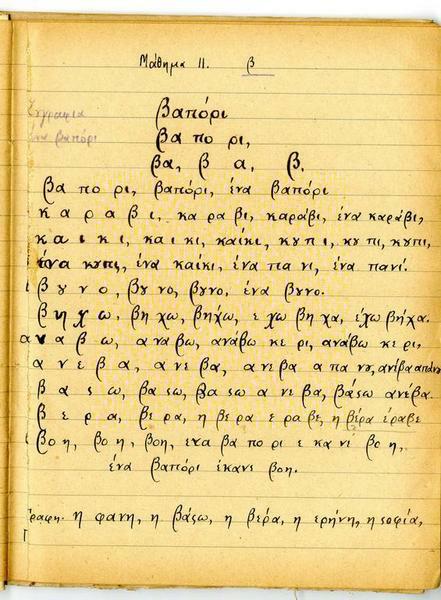 Μάθημα 11. β
ζωγραφια
ένα βαπόρι
βαπόρι
βα πο ρι,
βα, β α, β.
βα πο ρι, βαπόρι, ένα βαπόρι
κ α ρ α β ι, κα ρα βι, καράβι, ένα καράβι,
κ α ι κ ι, κα ι κι, καίκι, κ υ π ι, κυ πι, κυπι,
ένα κυπι, ένα καίκι, ένα πα νι, ένα πανί.
β υ ν ο, βυ νο, βυνο, ένα βυνο.
β η χ ω, βη χω, βήχω, ε χω βη χα, έχω βήχα.
α ν α β ω, α να βω, ανάβω κε ρι, ανάβω κε ρι,
α ν ε β α, α νε βα, ανεβα α πα νυ, ανέβα απάνυ
β α ς ω, βα ςω, βα ςω α νε βα, βάςω ανέβα.
β ε ρ α, βε ρα, η βε ρα ε ρα βε, η βέρα έραβε
βο η, βο η, βοη, ενα βα πο ρι ε κα νε βο η,
ένα βαπόρι έκανε βοη.
γραφη. η φανη, η βάςω, η βερα, η ερήνη, η ςοφία,